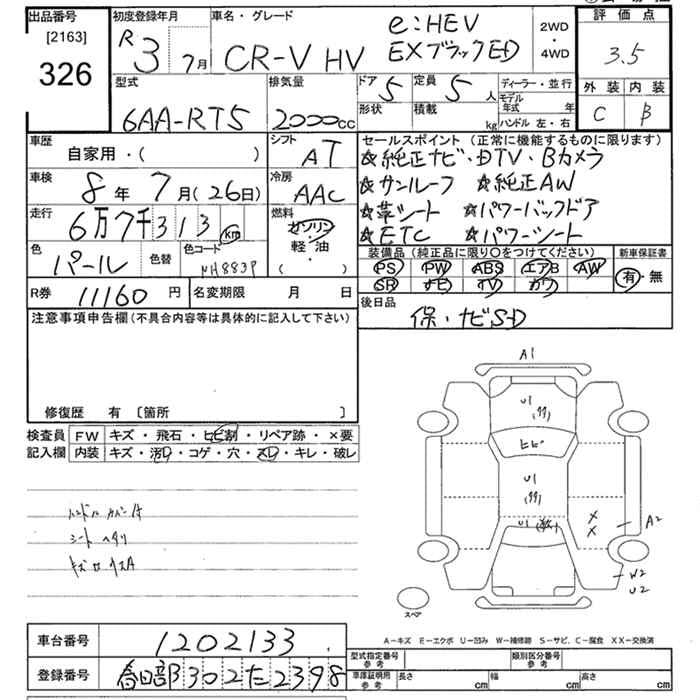 出品番号 [2163] 326
初度登録年月 R3 7月
車名・グレード CR-V HV e:HEV EXブラックED
2WD・4WD
評価点 3.5
外装 C 内装 B
型式 6AA-RT5
排気量 2000cc
ドア 5 定員 5人
形状 積載 kg
ディーラー・並行
モデル年式 年
ハンドル 左・右
車歴 自家用・( )
シフト AT
車検 8年7月(26日)
冷房 AAC
走行 6万7千313km
燃料 ガソリン・軽油 ( )
色 パール 色替 色コード NH883P
R券 11160円 名変期限 月 日
セールスポイント (正常に機能するものに限ります)
☆純正ナビ・DTV・Bカメラ
☆サンルーフ ☆純正AW
☆革シート ☆パワーバックドア
☆ETC ☆パワーシート
装備品 (純正品に限り○をつけてください) 新車保証書
PS PW ABS エアB AW 有・無
SR ナビ TV カワ
後日品 保・ナビSD
注意事項申告欄(不具合内容等は具体的に記入して下さい)
修復歴 有 〔箇所 〕
検査員記入欄
FW キズ・飛石・ヒビ割・リペア跡・×要
内装 キズ・汚レ・コゲ・穴・スレ・キレ・破レ
ハンドルカバー付
シートヘタリ
A1
U1
ヒビ
U1
U1
X
X
A2
W2
U2
スペア
A-キズ E-エクボ U-凹み W-補修跡 S-サビ、C-腐食 XX-交換済
車台番号 1202133
登録番号 春日部302た2398
型式指定番号 参考 類別区分番号 参考
車庫証明用 参考 長さ cm 幅 cm 高さ cm